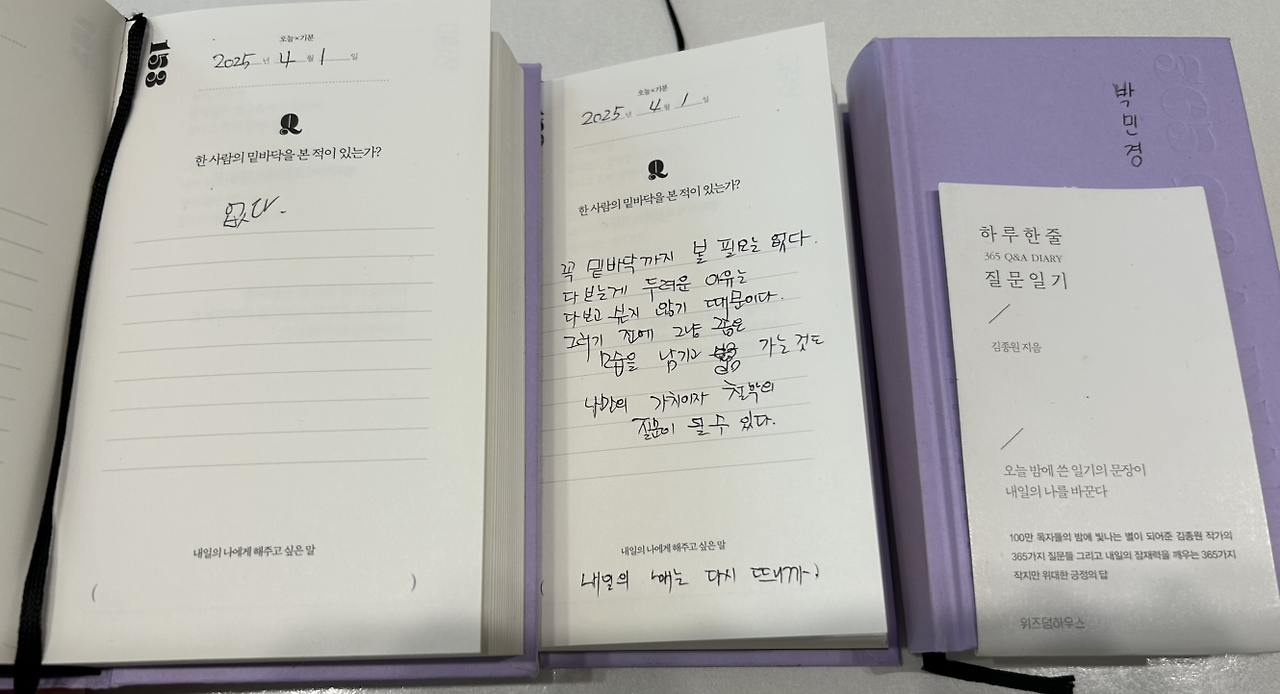 153
오늘×기분
2025년 4월 1일
Q
한 사람의 밑바닥을 본 적이 있는가?
없다.
내일의 나에게 해주고 싶은 말
( )
오늘×기분
2025년 4월 1일
Q
한 사람의 밑바닥을 본 적이 있는가?
꼭 밑바닥까지 볼 필요는 없다.
다 보는게 두려운 이유는
다보고 싶지 않기 때문이다.
그러기 전에 그냥 좋은
모습을 남기고 가는것도
나만의 가치이자 철학의
질문이 될 수 있다.
내일의 나에게 해주고 싶은 말
내일의 해는 다시 뜨니까)
박민경
하루한줄
365 Q&A DIARY
질문일기
김종원 지음
오늘 밤에 쓴 일기의 문장이
내일의 나를 바꾼다
100만 독자들의 밤에 빛나는 별이 되어준 김종원 작가의
365가지 질문들 그리고 내일의 잠재력을 깨우는 365가지
작지만 위대한 긍정의 답
위즈덤하우스